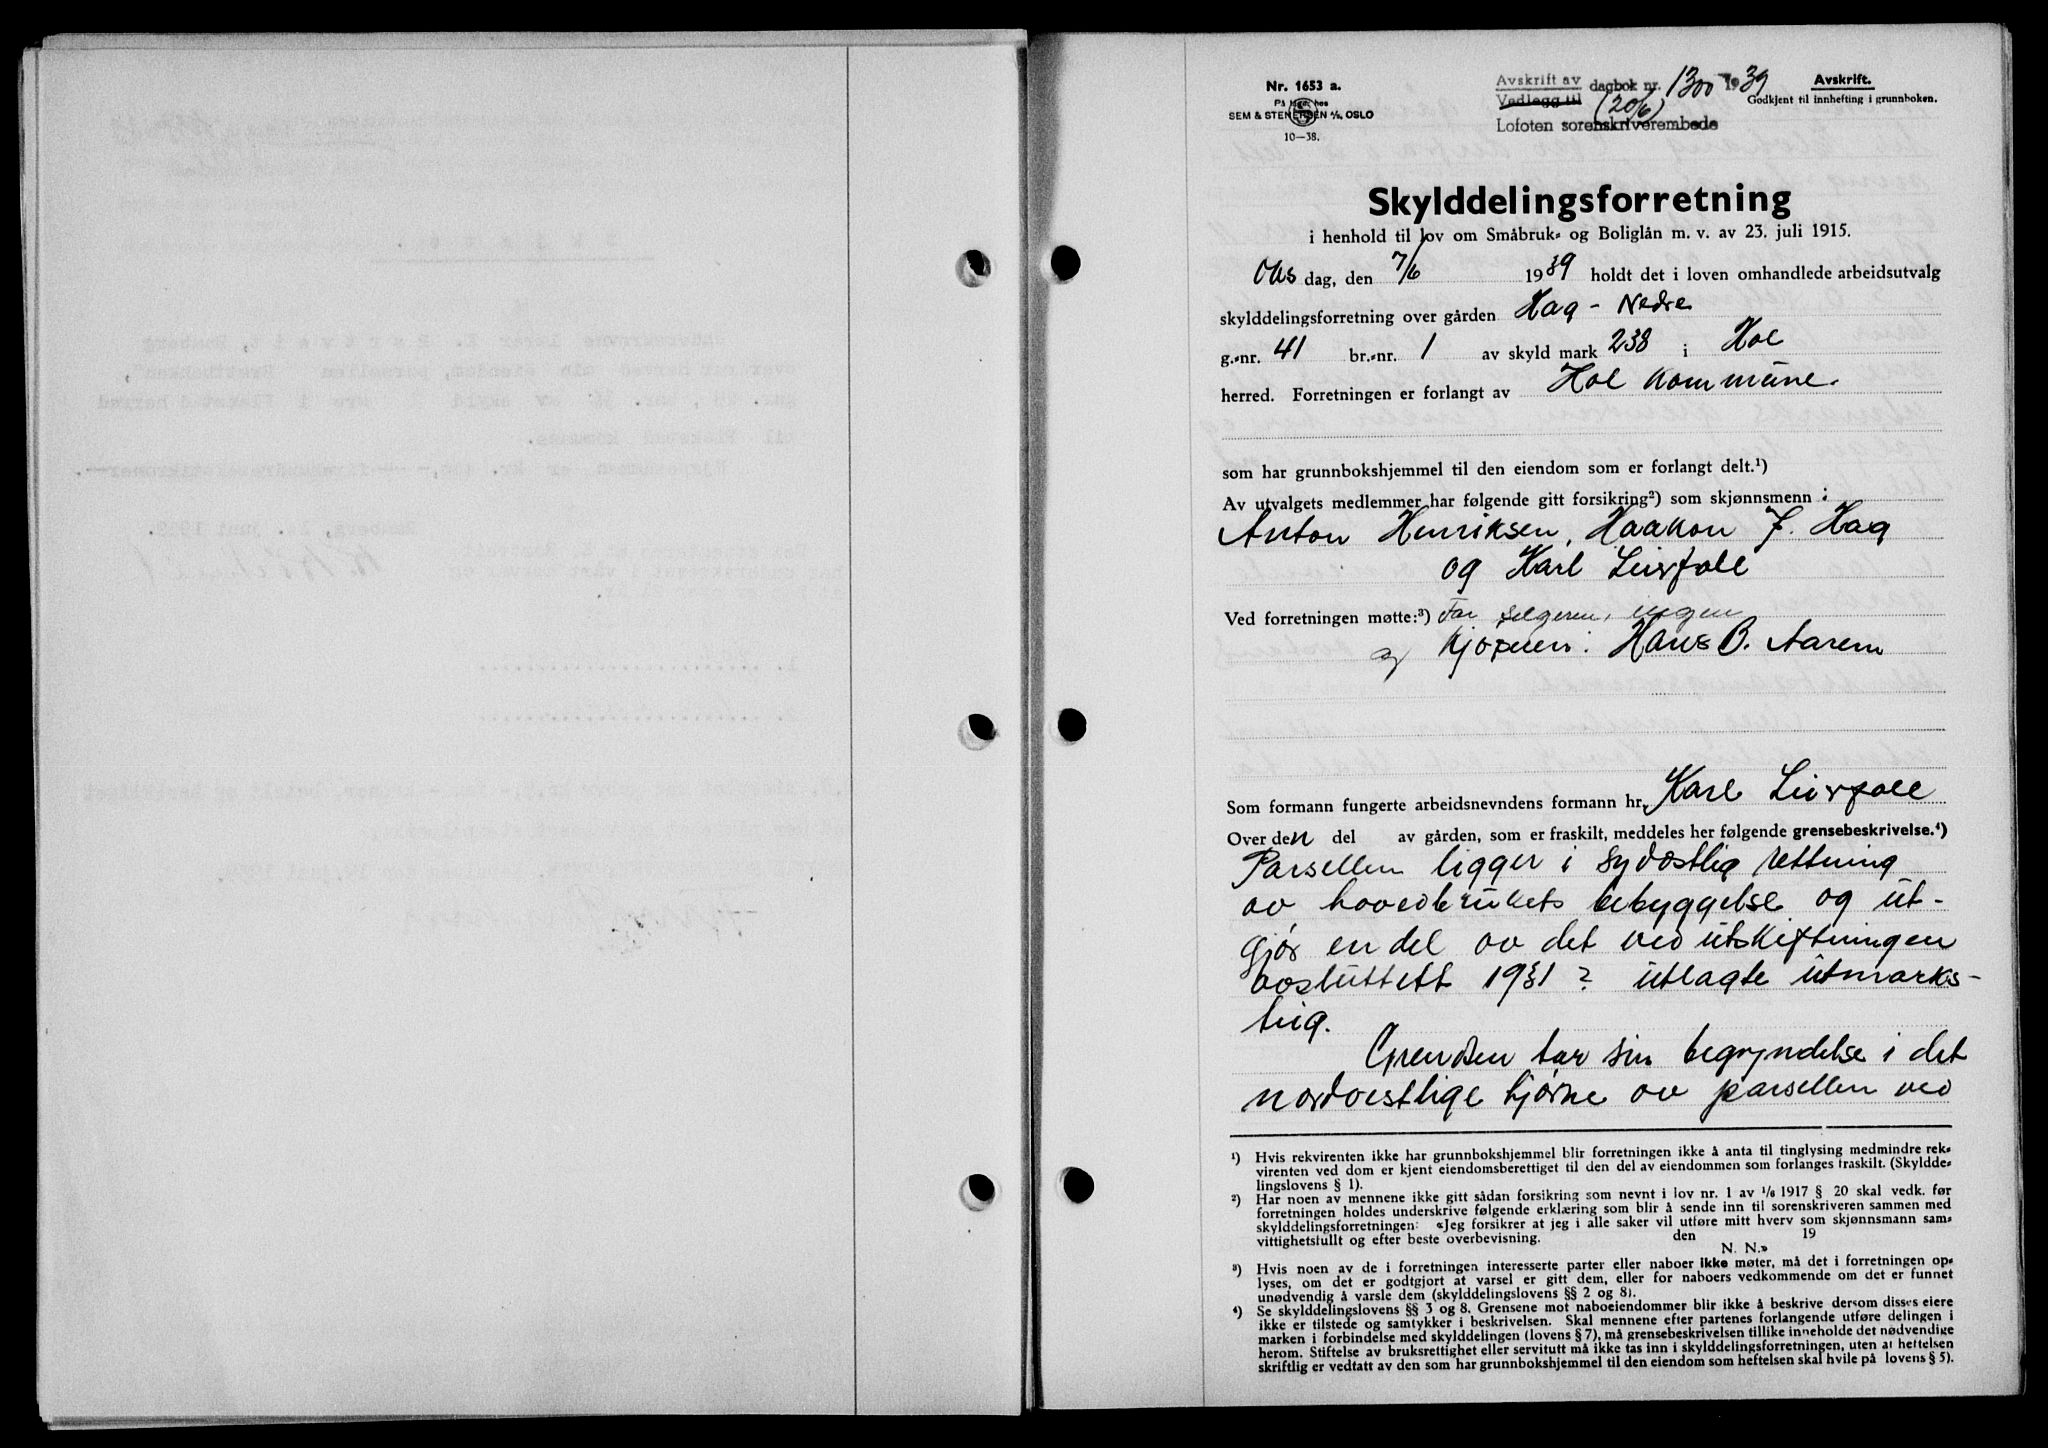 Nr. 1653 a.
På lager hos
SEM & STENERSEN A/S, OSLO
10—38.
Avskrift av
Vedlegg til
dagbok nr. 1300 1939
(20/6)
Lofoten sorenskriverembede
Avskrift.
Godkjent til innhefting i grunnboken.
Skylddelingsforretning
i henhold til lov om Småbruk- og Boliglån m. v. av 23. juli 1915.
Ons dag, den 7/6 1939 holdt det i loven omhandlede arbeidsutvalg
skylddelingsforretning over gården Hag - Nedre
g.-nr. 41 br.-nr. 1 av skyld mark 238 i Hol
herred. Forretningen er forlangt av Hol kommune.
som har grunnbokshjemmel til den eiendom som er forlangt delt.¹)
Av utvalgets medlemmer har følgende gitt forsikring²) som skjønnsmenn:
Anton Henriksen, Haakon J. Hag
og Karl Leirfall
Ved forretningen møtte:³) For selgeren, ingen
og kjøperen: Hans B. Aarem
Som formann fungerte arbeidsnevndens formann hr. Karl Leirfall
Over den del av gården, som er fraskilt, meddeles her følgende grensebeskrivelse.⁴)
Parsellen ligger i sydøstlig retning
av hovedbrukets bebyggelse og ut-
gjør en del av det ved utskiftningen
avsluttett 1931 ? utlagte utmarks-
teig.
Grensen tar sin begyndelse i det
nordvestlige hjørne av parsellen ved
¹) Hvis rekvirenten ikke har grunnbokshjemmel blir forretningen ikke å anta til tinglysing medmindre rek-
virenten ved dom er kjent eiendomsberettiget til den del av eiendommen som forlanges fraskilt. (Skyldde-
lingslovens § 1).
²) Har noen av mennene ikke gitt sådan forsikring som nevnt i lov nr. 1 av 1/6 1917 § 20 skal vedk. før
forretningen holdes underskrive følgende erklæring som blir å sende inn til sorenskriveren sammen med
skylddelingsforretningen: «Jeg forsikrer at jeg i alle saker vil utføre mitt hverv som skjønnsmann sam-
vittighetsfullt og efter beste overbevisning. den 19
N. N.»
³) Hvis noen av de i forretningen interesserte parter eller naboer ikke møter, må det i forretningen op-
lyses, om det er godtgjort at varsel er gitt dem, eller for naboers vedkommende om det er funnet
unødvendig å varsle dem (skylddelingslovens §§ 2 og 8).
⁴) Se skylddelingslovens §§ 3 og 8. Grensene mot naboeiendommer blir ikke å beskrive dersom disses eiere
ikke er tilstede og samtykker i beskrivelsen. Skal mennene efter partenes forlangende utføre delingen i
marken i forbindelse med skylddelingen (lovens § 7), må grensebeskrivelsen tillike inneholde det nødvendige
herom. Stiftelse av bruksrettighet eller servitutt må ikke tas inn i skylddelingsforretningen, uten at heftelsen
skriftlig er vedtatt av den som har grunnbokshjemmel til den eiendom som heftelsen skal hvile på (lovens § 5).